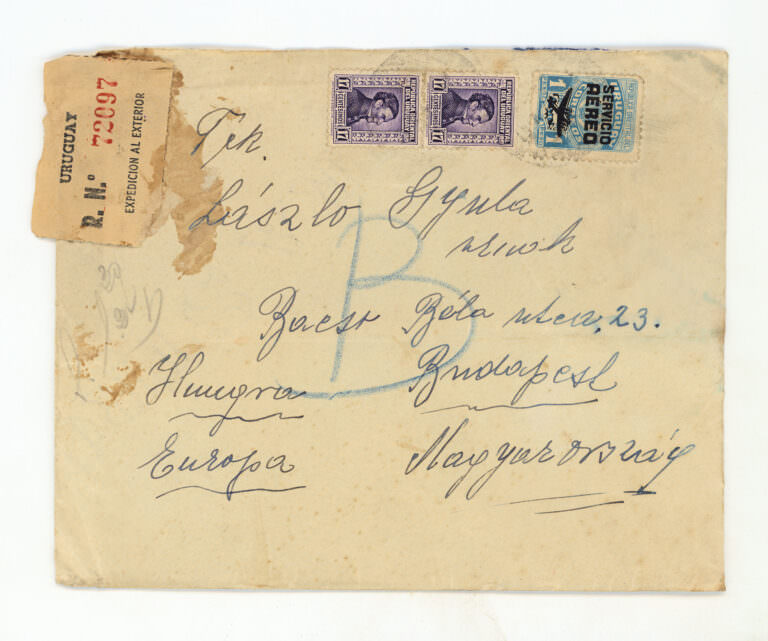 URUGUAY
R. N.º 72097
EXPEDICION AL EXTERIOR
17
17
17
17
SERVICIO
AEREO
1
1
Tek.
László Gyula
urnok
Bacso Béla utca, 23.
B
Hungra Budapest
Europa Magyarország